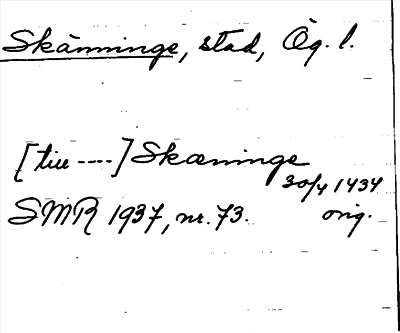 Skänninge, stad, Ög. l.
[till ----] Skæninge
30/4 1434
SMR 1937, nr. 73. orig.